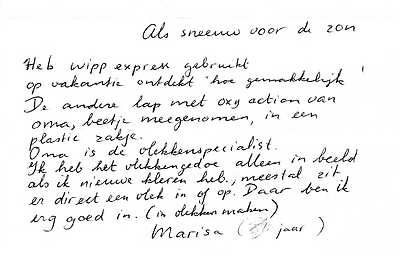 Als sneeuw voor de zon
Heb wipp express gebruikt
op vakantie ontdekt hoe gemakkelijk!
De andere lap met oxy action van
oma, beetje meegenomen, in een
plastic zakje.
Oma is de vlekkenspecialist.
Ik heb het vlekkengedoe alleen in beeld
als ik nieuwe kleren heb, meestal zit
er direct een vlek in of op. Daar ben ik
erg goed in. (in vlekken maken)
Marisa ( jaar )